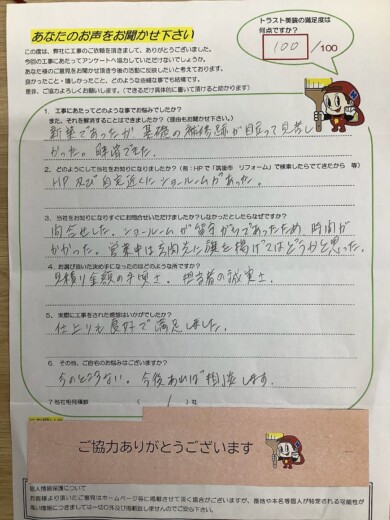 あなたのお声をお聞かせ下さい
この度は、弊社に工事のご依頼を頂きまして、ありがとうございました。
今回の工事にあたってアンケートへ協力していただけないでしょうか。
あなた様のご意見をお聞かせ頂き今後の活動に反映したいと考えております。
良かったこと・嬉しかったこと、どのような些細な事でも結構です。
是非、ご協力よろしくお願いします。（できるだけ具体的に書いて頂けると助かります）
トラスト美装の満足度は
何点ですか？
100 /100
1. 工事にあたってどのような事でお悩みでしたか？
また、それを解消することはできましたか？（理由もお聞かせ下さい）
新築であったが基礎の補修跡が目立って見苦し
かった。解消できた。
2. どのようにして当社をお知りになりましたか？（例：HPで「筑後市 リフォーム」で検索したらでてきたから 等）
HP及び自宅近くにショールームがあった。
3. 当社をお知りになりすぐにお問合せいただけましたか？しなかったとしたらなぜですか？
問合せした。ショールームが留守がちであったため、時間が
かかった。営業中は玄関先に旗を揚げてはどうかと思った。
4. お選び頂いた決め手になったのはどのような所ですか？
見積り金額の手頃さ。担当者の誠実さ。
5. 実際に工事をされた感想はいかがでしたか？
仕上りも良好で満足しました。
6. その他、ご自宅のお悩みはございますか？
今のところない。今後あれば相談します。
7 当社相見積数 （ 1 ）社
ご協力ありがとうございます
個人情報保護について
お客様より頂いたご意見はホームページ等に掲載させて頂く場合がございますが、番地や本名等個人が特定される可能性が
高い情報につきましては一切口外及び掲載致しませんのでご安心下さい。